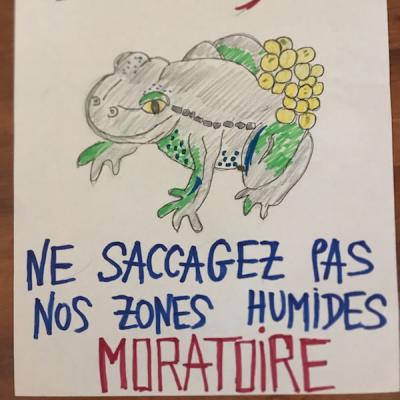 NE SACCAGEZ PAS
NOS ZONES HUMIDES
MORATOIRE